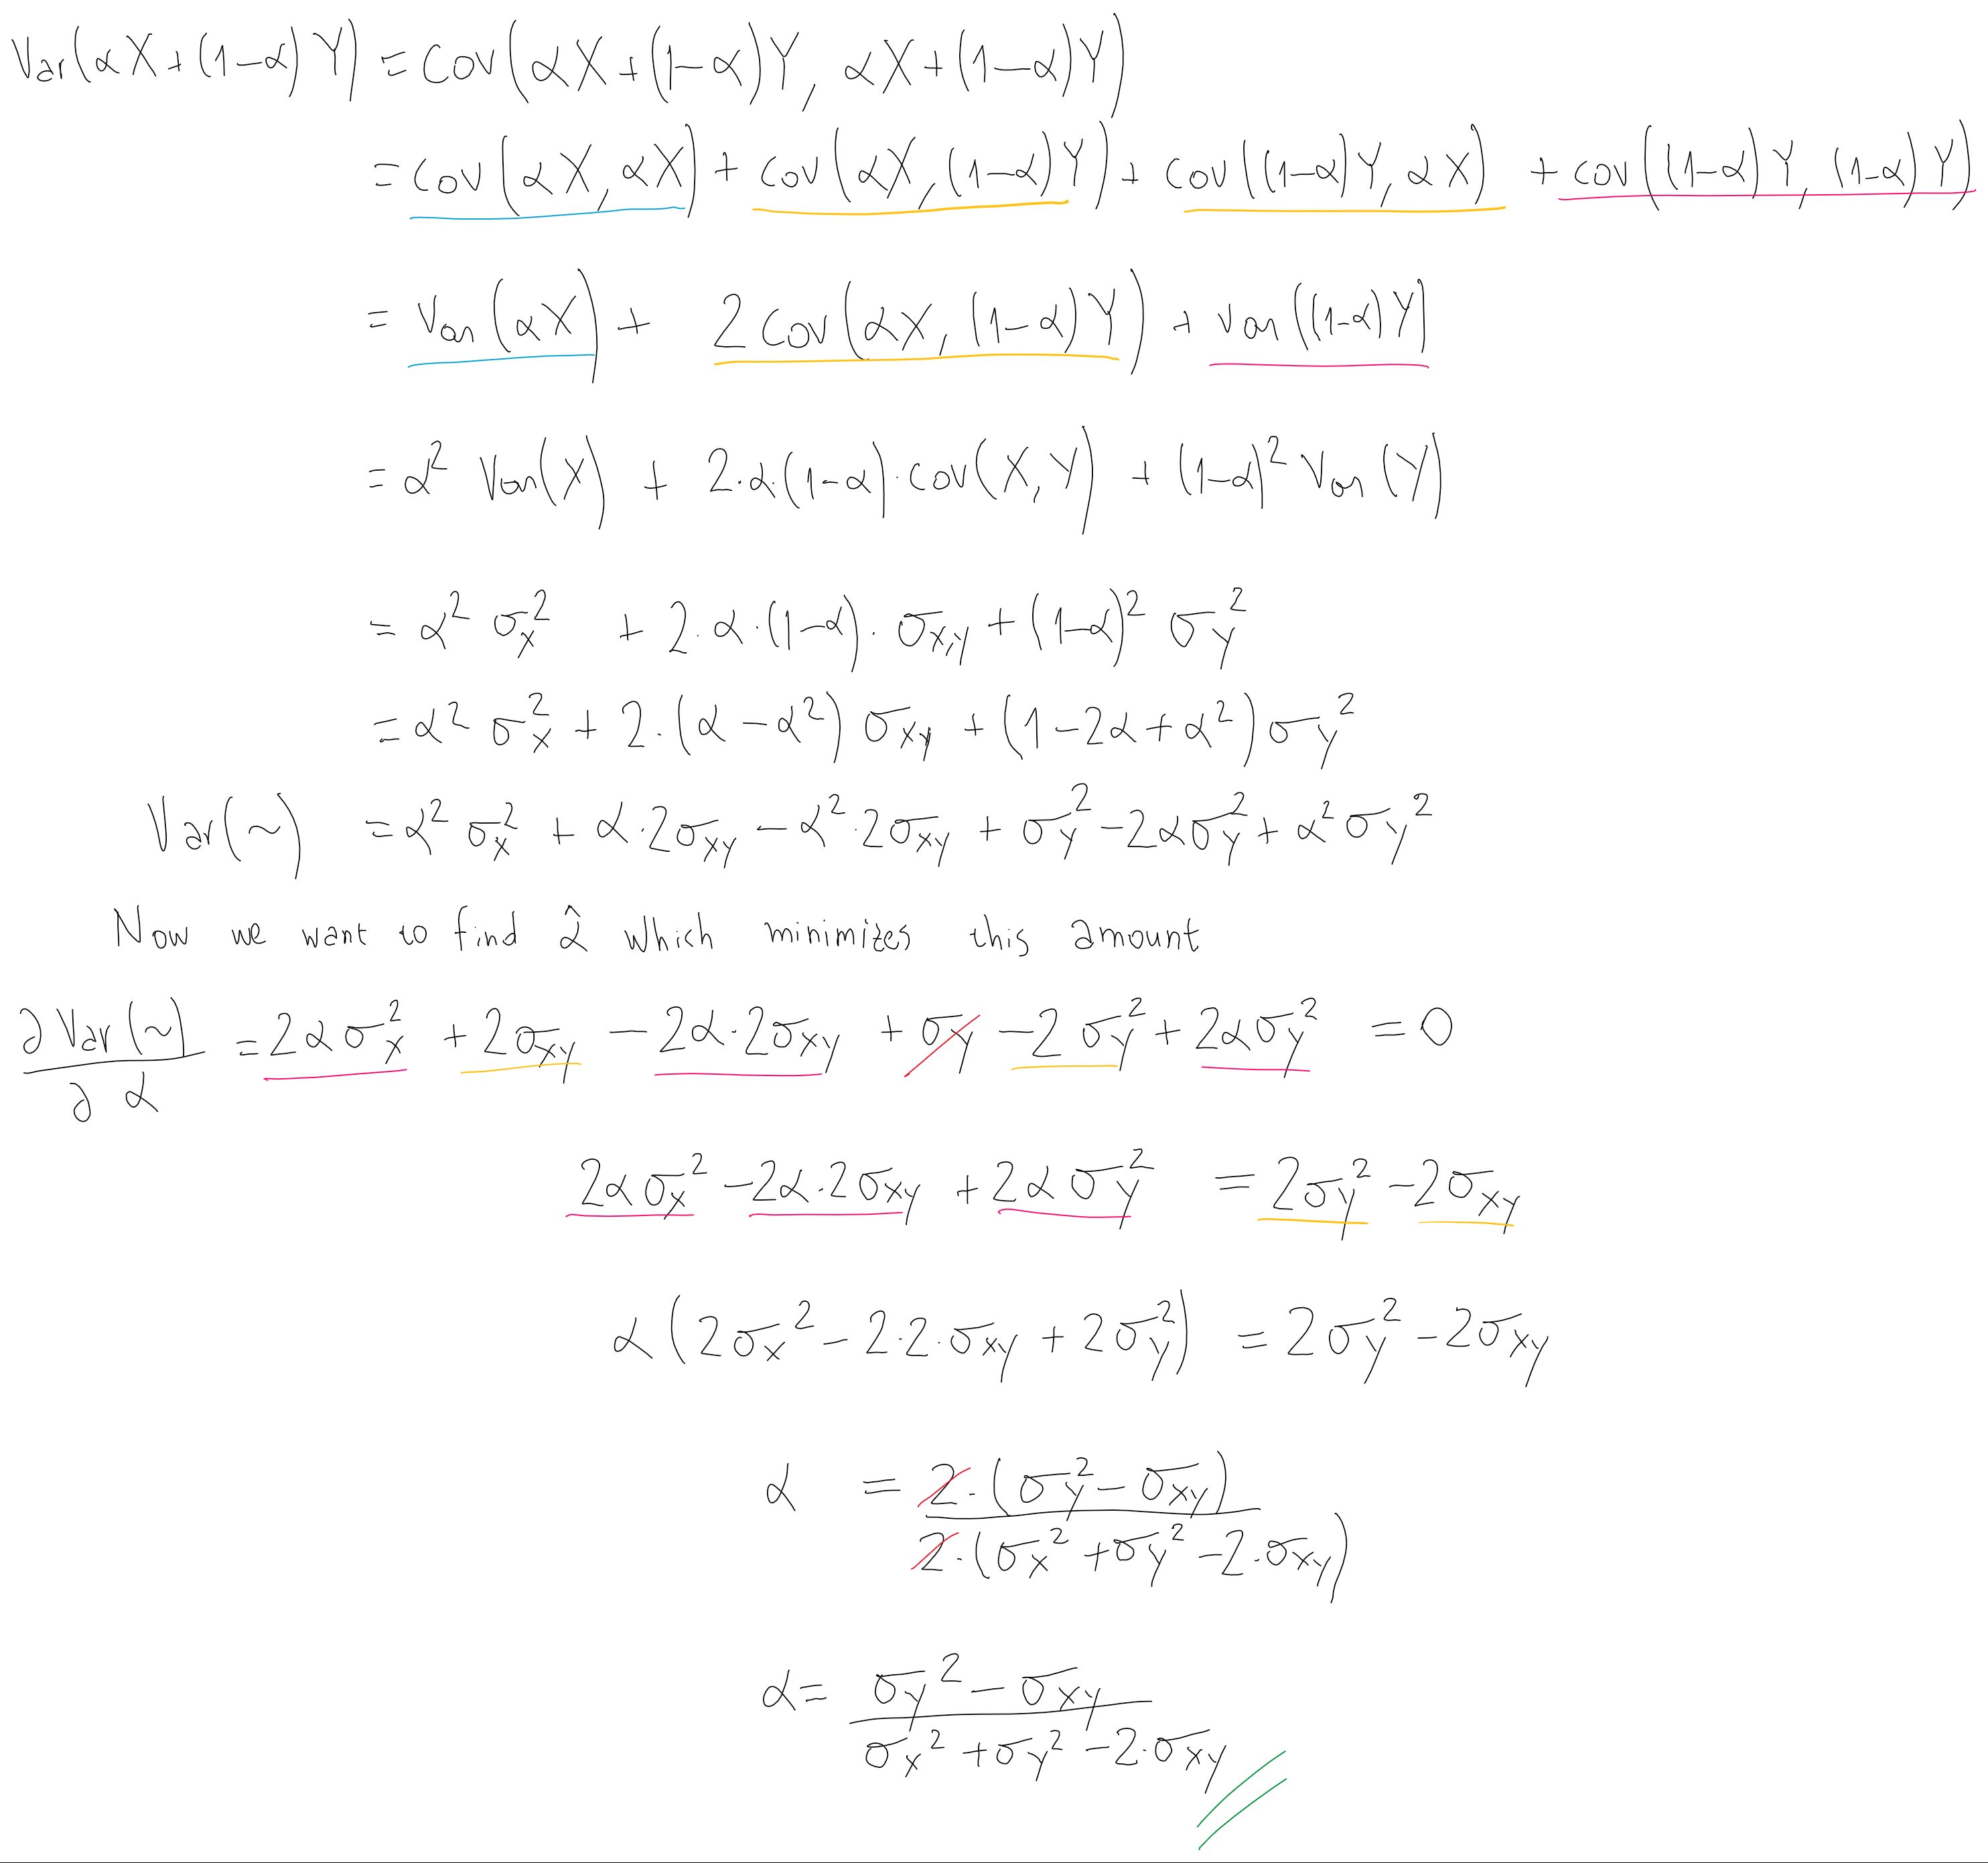 Var(αX+(1-α)Y) = cov(αX+(1-α)Y, αX+(1-α)Y)
= cov(αX, αX) + cov(αX, (1-α)Y) + cov((1-α)Y, αX) + cov((1-α)Y, (1-α)Y)
= Var(αX) + 2cov(αX, (1-α)Y) + Var((1-α)Y)
= α² Var(X) + 2·α·(1-α)·cov(X,Y) + (1-α)² Var(Y)
= α² σx² + 2·α·(1-α)·σx,y + (1-α)² σy²
= α² σx² + 2·(α-α²)σxy + (1-2α+α²)σy²
Var(~) = α² σx² + α·2σxy - α²·2σxy + σy² - 2ασy² + α²σy²
Now we want to find α̂ which minimizes this amount
∂Var(~)/∂α = 2ασx² + 2σxy - 2α·2σxy + σy - 2σy² + 2ασy² = 0
2ασx² - 2α·2σxy + 2ασy² = 2σy² - 2σxy
α(2σx² - 2·2·σxy + 2σy²) = 2σy² - 2σxy
α = 2·(σy² - σxy) / 2·(σx² + σy² - 2·σxy)
α = σy² - σxy / σx² + σy² - 2·σxy